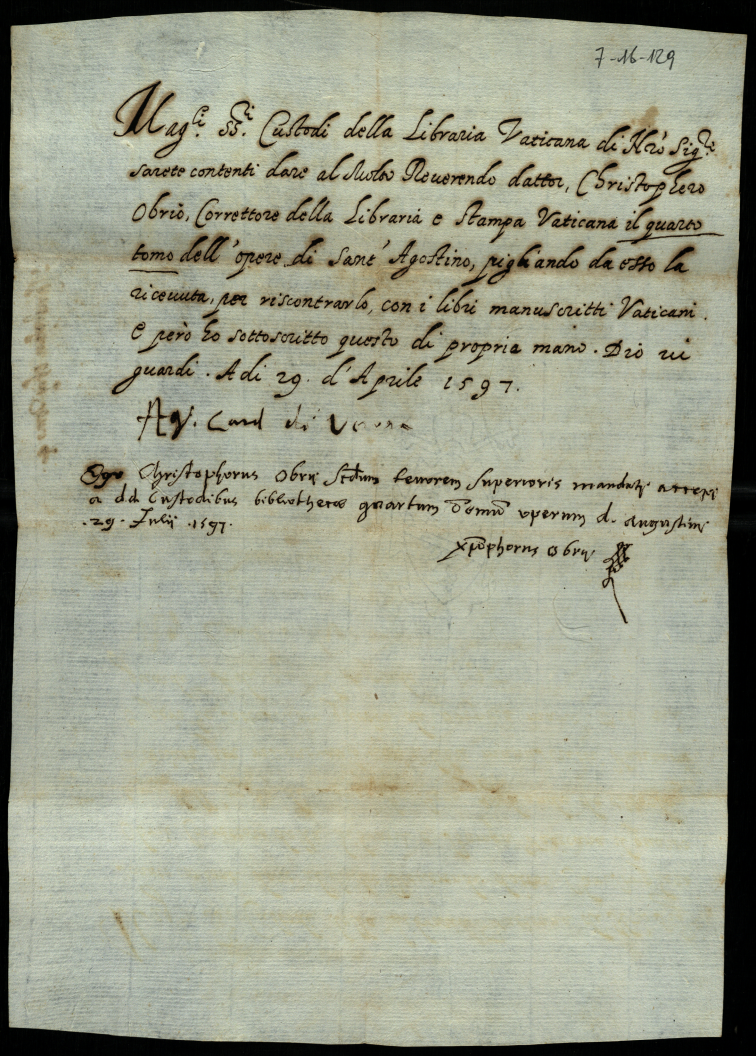 7-16-129
Mag.ci SS.ri Custodi della Libraria Vaticana di Nr̃o Sig.re
sarete contenti dare al Molto Reverendo dattor, Christophero
Obrio, Correttore della Libraria e Stampa Vaticana il quarto
tomo dell'opere di Sant'Agostino, pigliando da esso la
ricevuta, per riscontrarlo, con i libri manuscritti Vaticani.
E però ho sottoscritto questo di propria mano. Dio vi
guardi. Adi 29. d'Aprile 1597.
Ag. Card di Verona
Ego Christophorus Obrij Scd̃um tenorem superioris mandati accepi
a dd Custodibus bibliothecæ quartum Tomũ operum d. Augustini
.29. Julij .1597.
xp̃ophorus Obrij